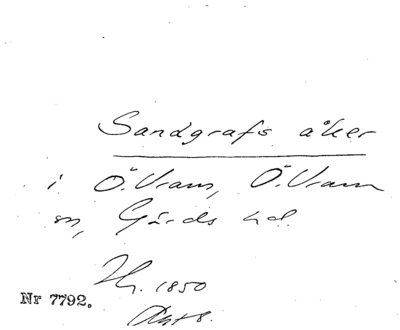 Sandgrafs åker
i Ö. Vram, Ö. Vram
sn, Gärds hd.
1850
Nr 7792.